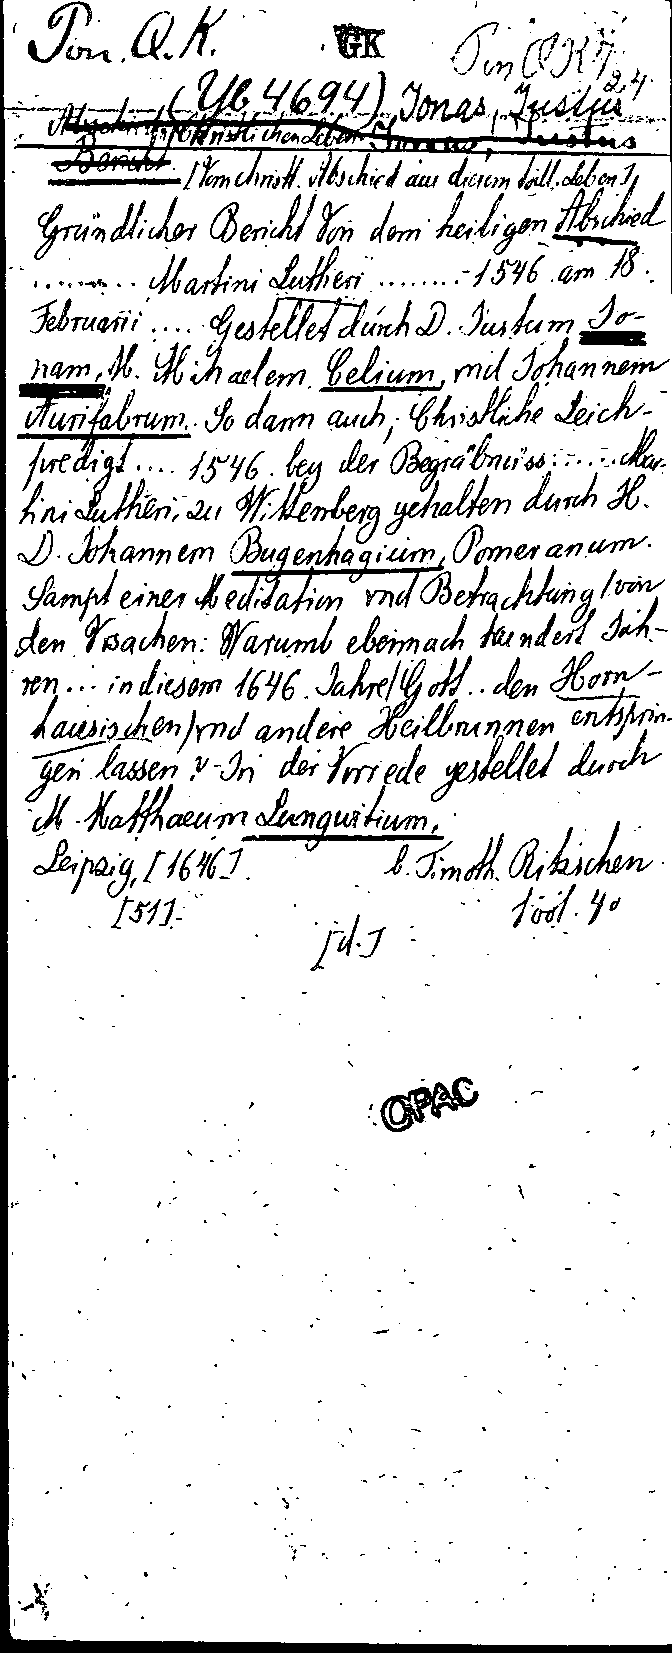 Pon. Q. K. GK Pon QK
(Yb 4694) Jonas, Justus
Jonas, Justus
Bericht [Vom christl. Abschied aus diesem tödl. Leben],
Gründlicher Bericht Von dem heiligen Abschied
......... Martini Lutheri ........ 1546 am 18.
Februarii .... Gestellet durch D. Justum Jo-
nam, M. Michaelem Celium, vnd Johannem
Aurifabrum. So dann auch, Christliche Leich-
predigt .... 1546. bey der Begräbnüss ...... Mar-
tini Lutheri, zu Wittenberg gehalten durch H.
D. Johannem Bugenhagium, Pomeranum.
Sampt einer Meditation vnd Betrachtung/von
den Vrsachen: Warumb eben nach hundert Jah-
ren ... in diesem 1646. Jahre/Gott .. den Horn-
hausischen/vnd andere Heilbrunnen entsprin-
gen lassen? In der Vorrede gestellet durch
M. Matthaeum Lungwitium.
Leipzig, [1646]. b. Timoth. Ritzschen
[51]. 4°
[d.]
OPAC